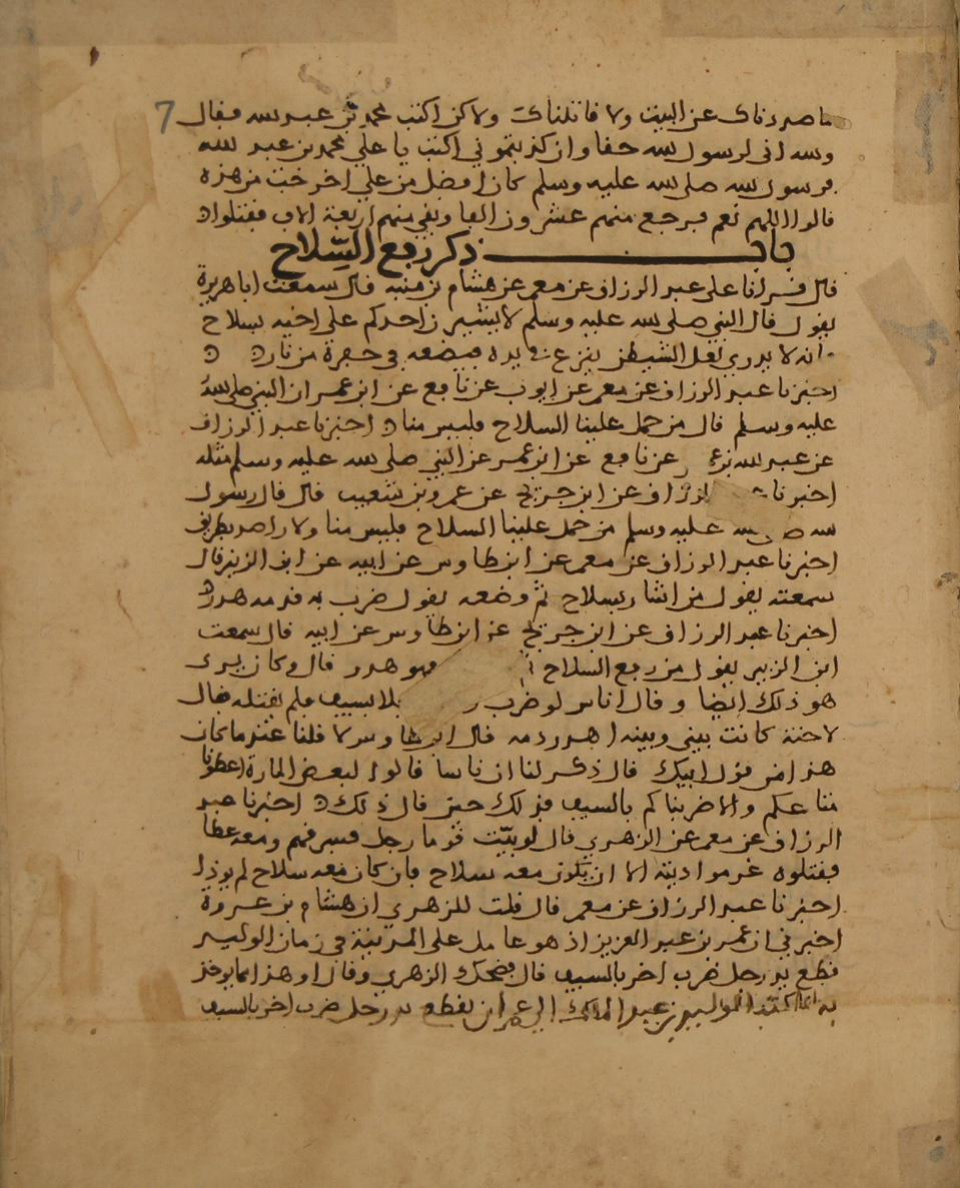 ما صددناك عن البيت ولا قاتلناك ولاكن اكتب محمد بن عبد الله فقال
والله اني لرسول الله حقا وان كذبتموني اكتب يا علي محمد بن عبد الله
فرسول الله صلى الله عليه وسلم كان افضل من علي اخرجت من هذه
قالوا اللهم نعم فرجع منهم عشرون الفا وبقي منهم اربعة الاف فقتلوا
باب ذكر رفع السلاح
قال قرانا على عبد الرزاق عن معمر عن هشام بن منبه قال سمعت ابا هريرة
يقول قال النبي صلى الله عليه وسلم لا يشيرن احدكم على اخيه بسلاح
فانه لا يدري لعل الشيطن ينزع في يده فيضعه في حفرة من نار
اخبرنا عبد الرزاق عن معمر عن ايوب عن نافع عن ابن عمر ان النبي صلى الله
عليه وسلم قال من حمل علينا السلاح فليس منا اخبرنا عبد الرزاق
عن عبد الله بن عمر عن نافع عن ابن عمر عن النبي صلى الله عليه وسلم مثله
اخبرنا الرزاق عن ابن جريج عن عمرو بن شعيب قال قال رسول
الله صلى الله عليه وسلم من حمل علينا السلاح فليس منا ولا راصد بطريق
اخبرنا عبد الرزاق عن معمر عن ابن طاوس عن ابيه عن ابن الزبير قال
سمعته يقول من اشار بسلاح ثم وضعه يقول ضرب به فدمه هدر
اخبرنا عبد الرزاق عن ابن جريج عن ابن طاوس عن ابيه قال سمعت
ابن الزبير يقول من رفع السلاح فهو هدر قال وكان يرى
هو ذلك ايضا وقال اناس لو ضرب بالسيف فلم يقتله قال
لاحنة كانت بيني وبينه اهدر دمه قال ابن طاوس لا قلنا عندما كان
هذا من قول ابيك قال ذكر لنا ان ناسا قالوا لبعض المارة اعطونا
متاعكم والا ضربناكم بالسيف فذلك حين قال ذلك اخبرنا عبد
الرزاق عن معمر عن الزهري قال لو بيت قوما رجل فسرقهم ومعه عصا
فقتلوه غرموا ديته الا ان يكون معه سلاح فان كان معه سلاح لم يودا
اخبرنا عبد الرزاق عن معمر قال قلت للزهري ان هشام بن عروة
اخبرني ان عمر بن عبد العزيز اذ هو عامل على المدينة في زمان الوليد
قطع يد رجل ضرب اخر بالسيف قال فضحك الزهري وقال او هذا مما يوخذ
به انما كتب الوليد بن عبد الملك الى عمر ان يقطع يد رجل ضرب اخر بالسيف